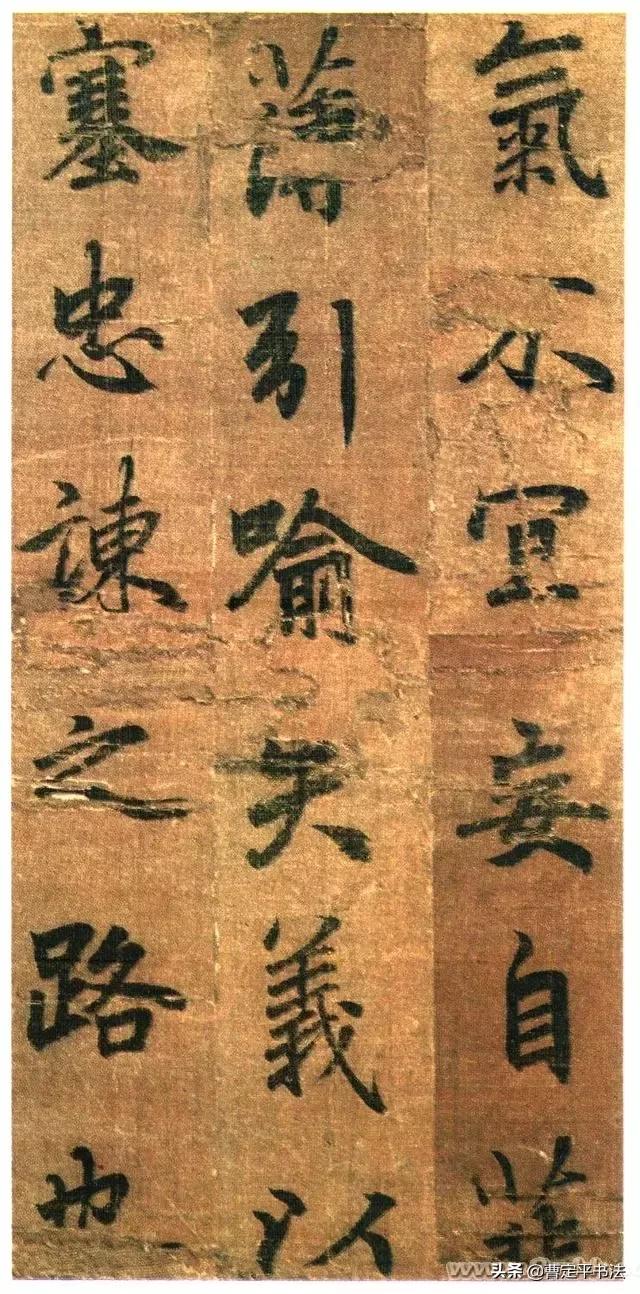 氣不宜妄自菲
薄引喻失義以
塞忠諫之路也
头条 @曹定平书法